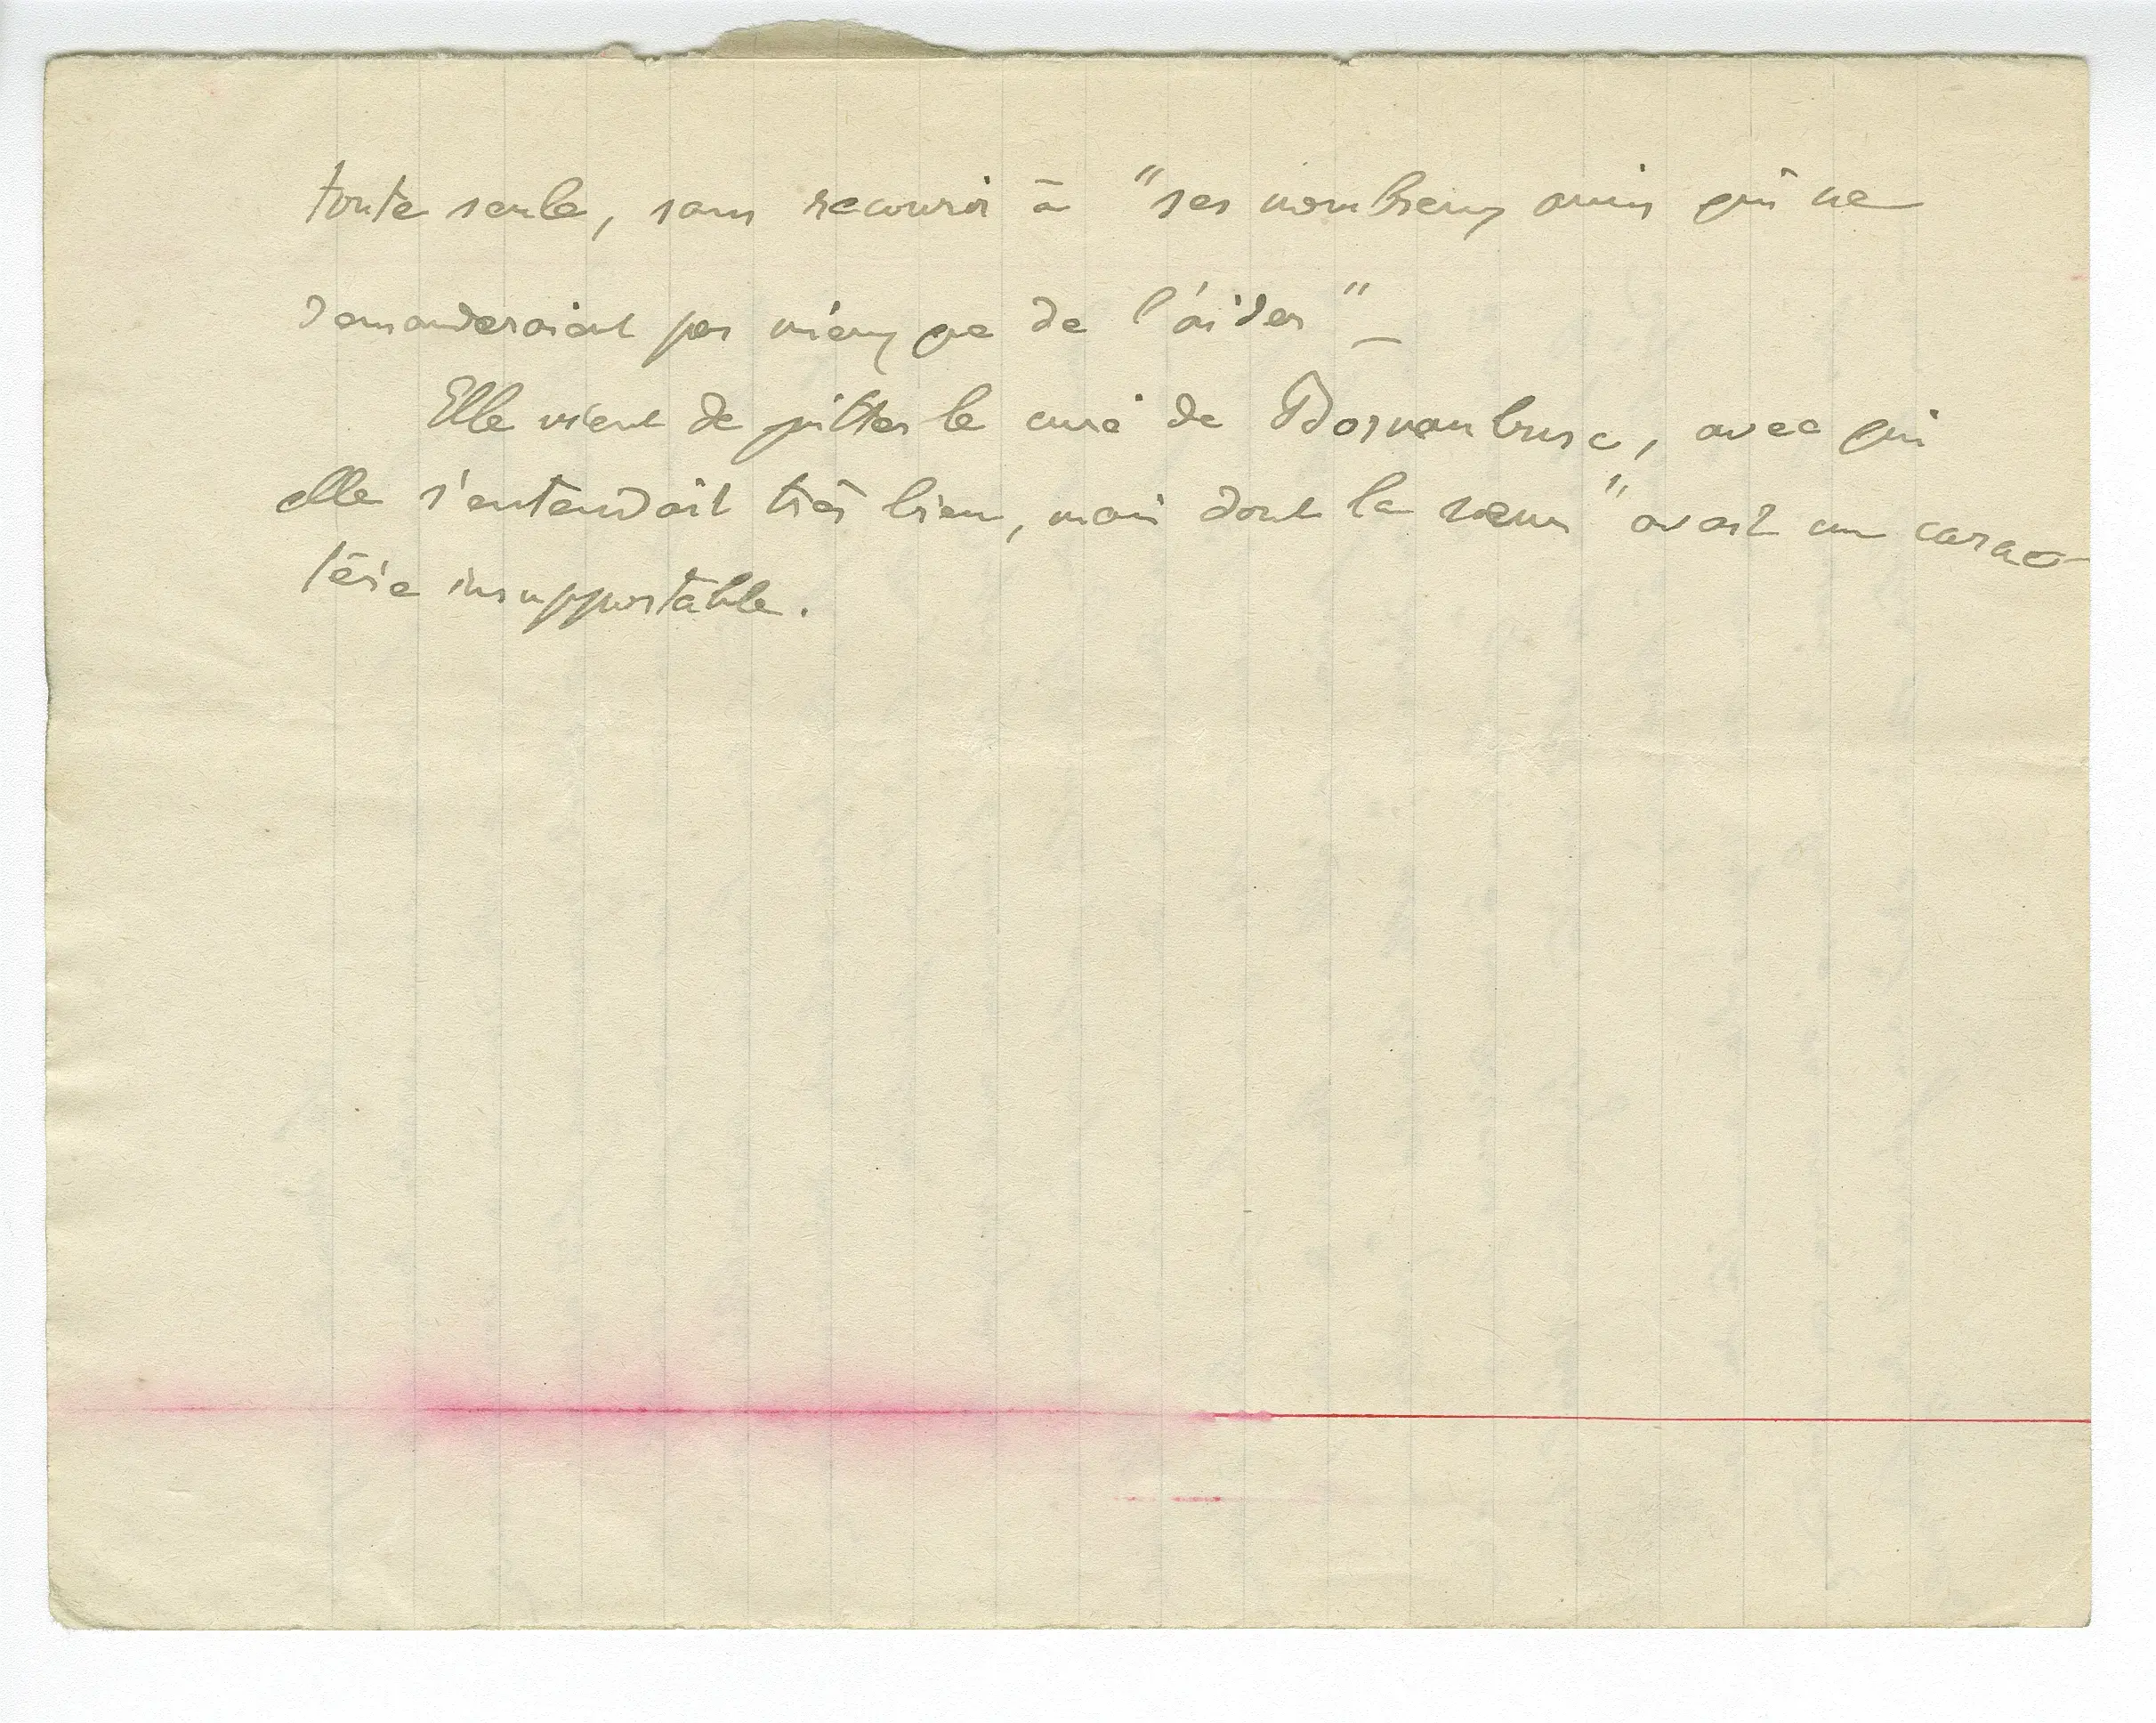 toute seule, sans recourir à "ses nombreux amis qui ne
demanderaient pas mieux que de l'aider" _
Elle vient de quitter le curé de Bornambusc, avec qui
elle s'entendait très bien, mais dont la sœur "avait un carac-
tère insupportable.